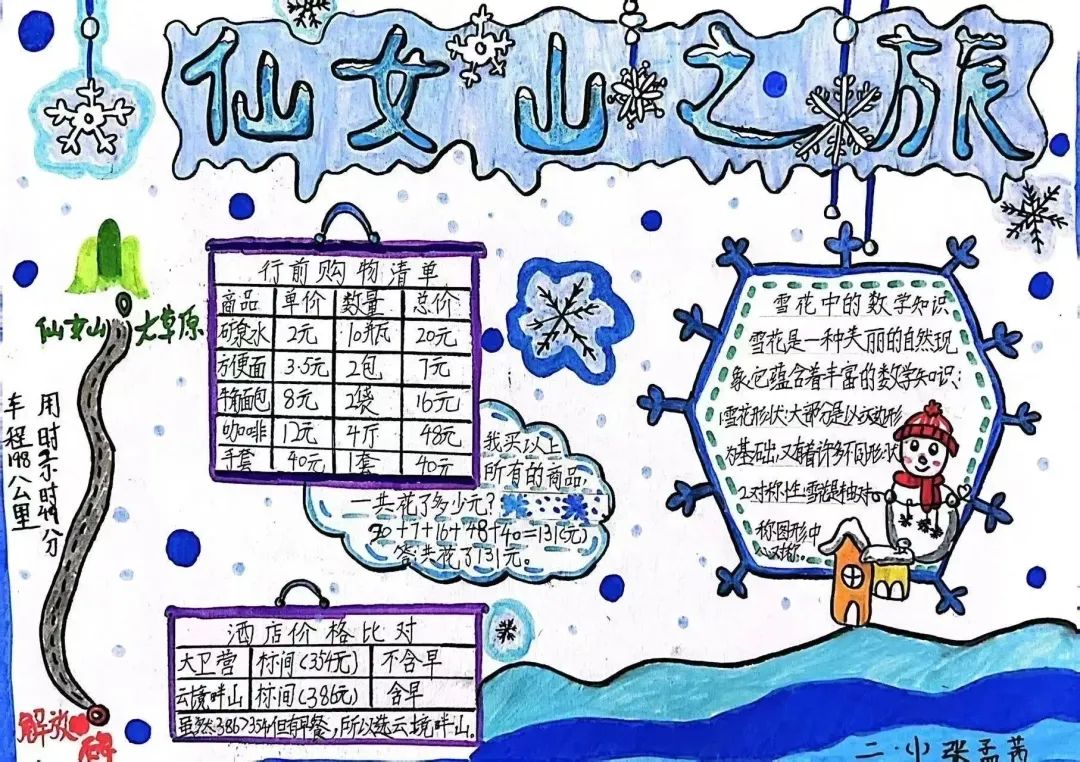 仙女山之旅
仙女山大草原
用时2小时44分
车程198公里
解放碑
行前购物清单
商品 单价 数量 总价
矿泉水 2元 10瓶 20元
方便面 3.5元 2包 7元
牛角面包 8元 2袋 16元
咖啡 12元 4斤 48元
手套 40元 1套 40元
我买以上
所有的商品,
一共花了多少元?
20+7+16+48+40=131(元)
答:共花了131元。
酒店价格比对
大卫营 标间(354元) 不含早
云境畔山 标间(386元) 含早
虽然386>354但有早餐,所以选云境畔山。
雪花中的数学知识
雪花是一种美丽的自然现
象,它蕴含着丰富的数学知识:
1雪花形状:大部分是以六边形
为基础,又有着许多不同形状
2.对称性:雪花是轴对
称图形中
心对称。
二·小 张孟茜